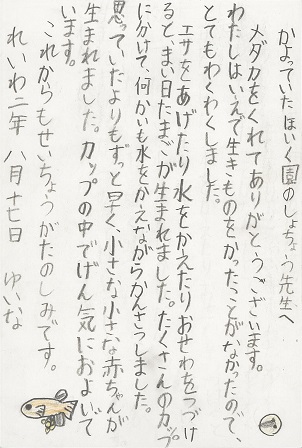 かよっていたほいく園のしょちょう先生へ
メダカをくれてありがとうございます。
わたしはいえで生きものをかったことがなかったので
とてもわくわくしました。
エサをあげたり水をかえたりおせわをつづけ
るとまい日たまごが生まれました。たくさんのカップ
に分けて、何かいも水をかえながらかんさつしました。
思っていたよりもずっと早く、小さな小さな赤ちゃんが
生まれました。カップの中でげん気におよいで
います。
これからもせいちょうがたのしみです。
れいわ二年 八月十七日 ゆいな